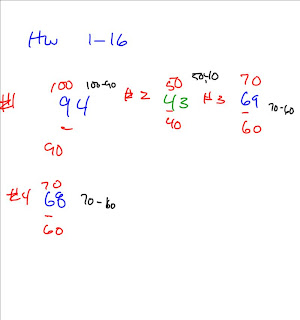 Hw 1-16
100 100-90
#1 94
90
50 50-40
#2 43
40
70
#3 69 70-60
60
70
#4 68 70-60
60